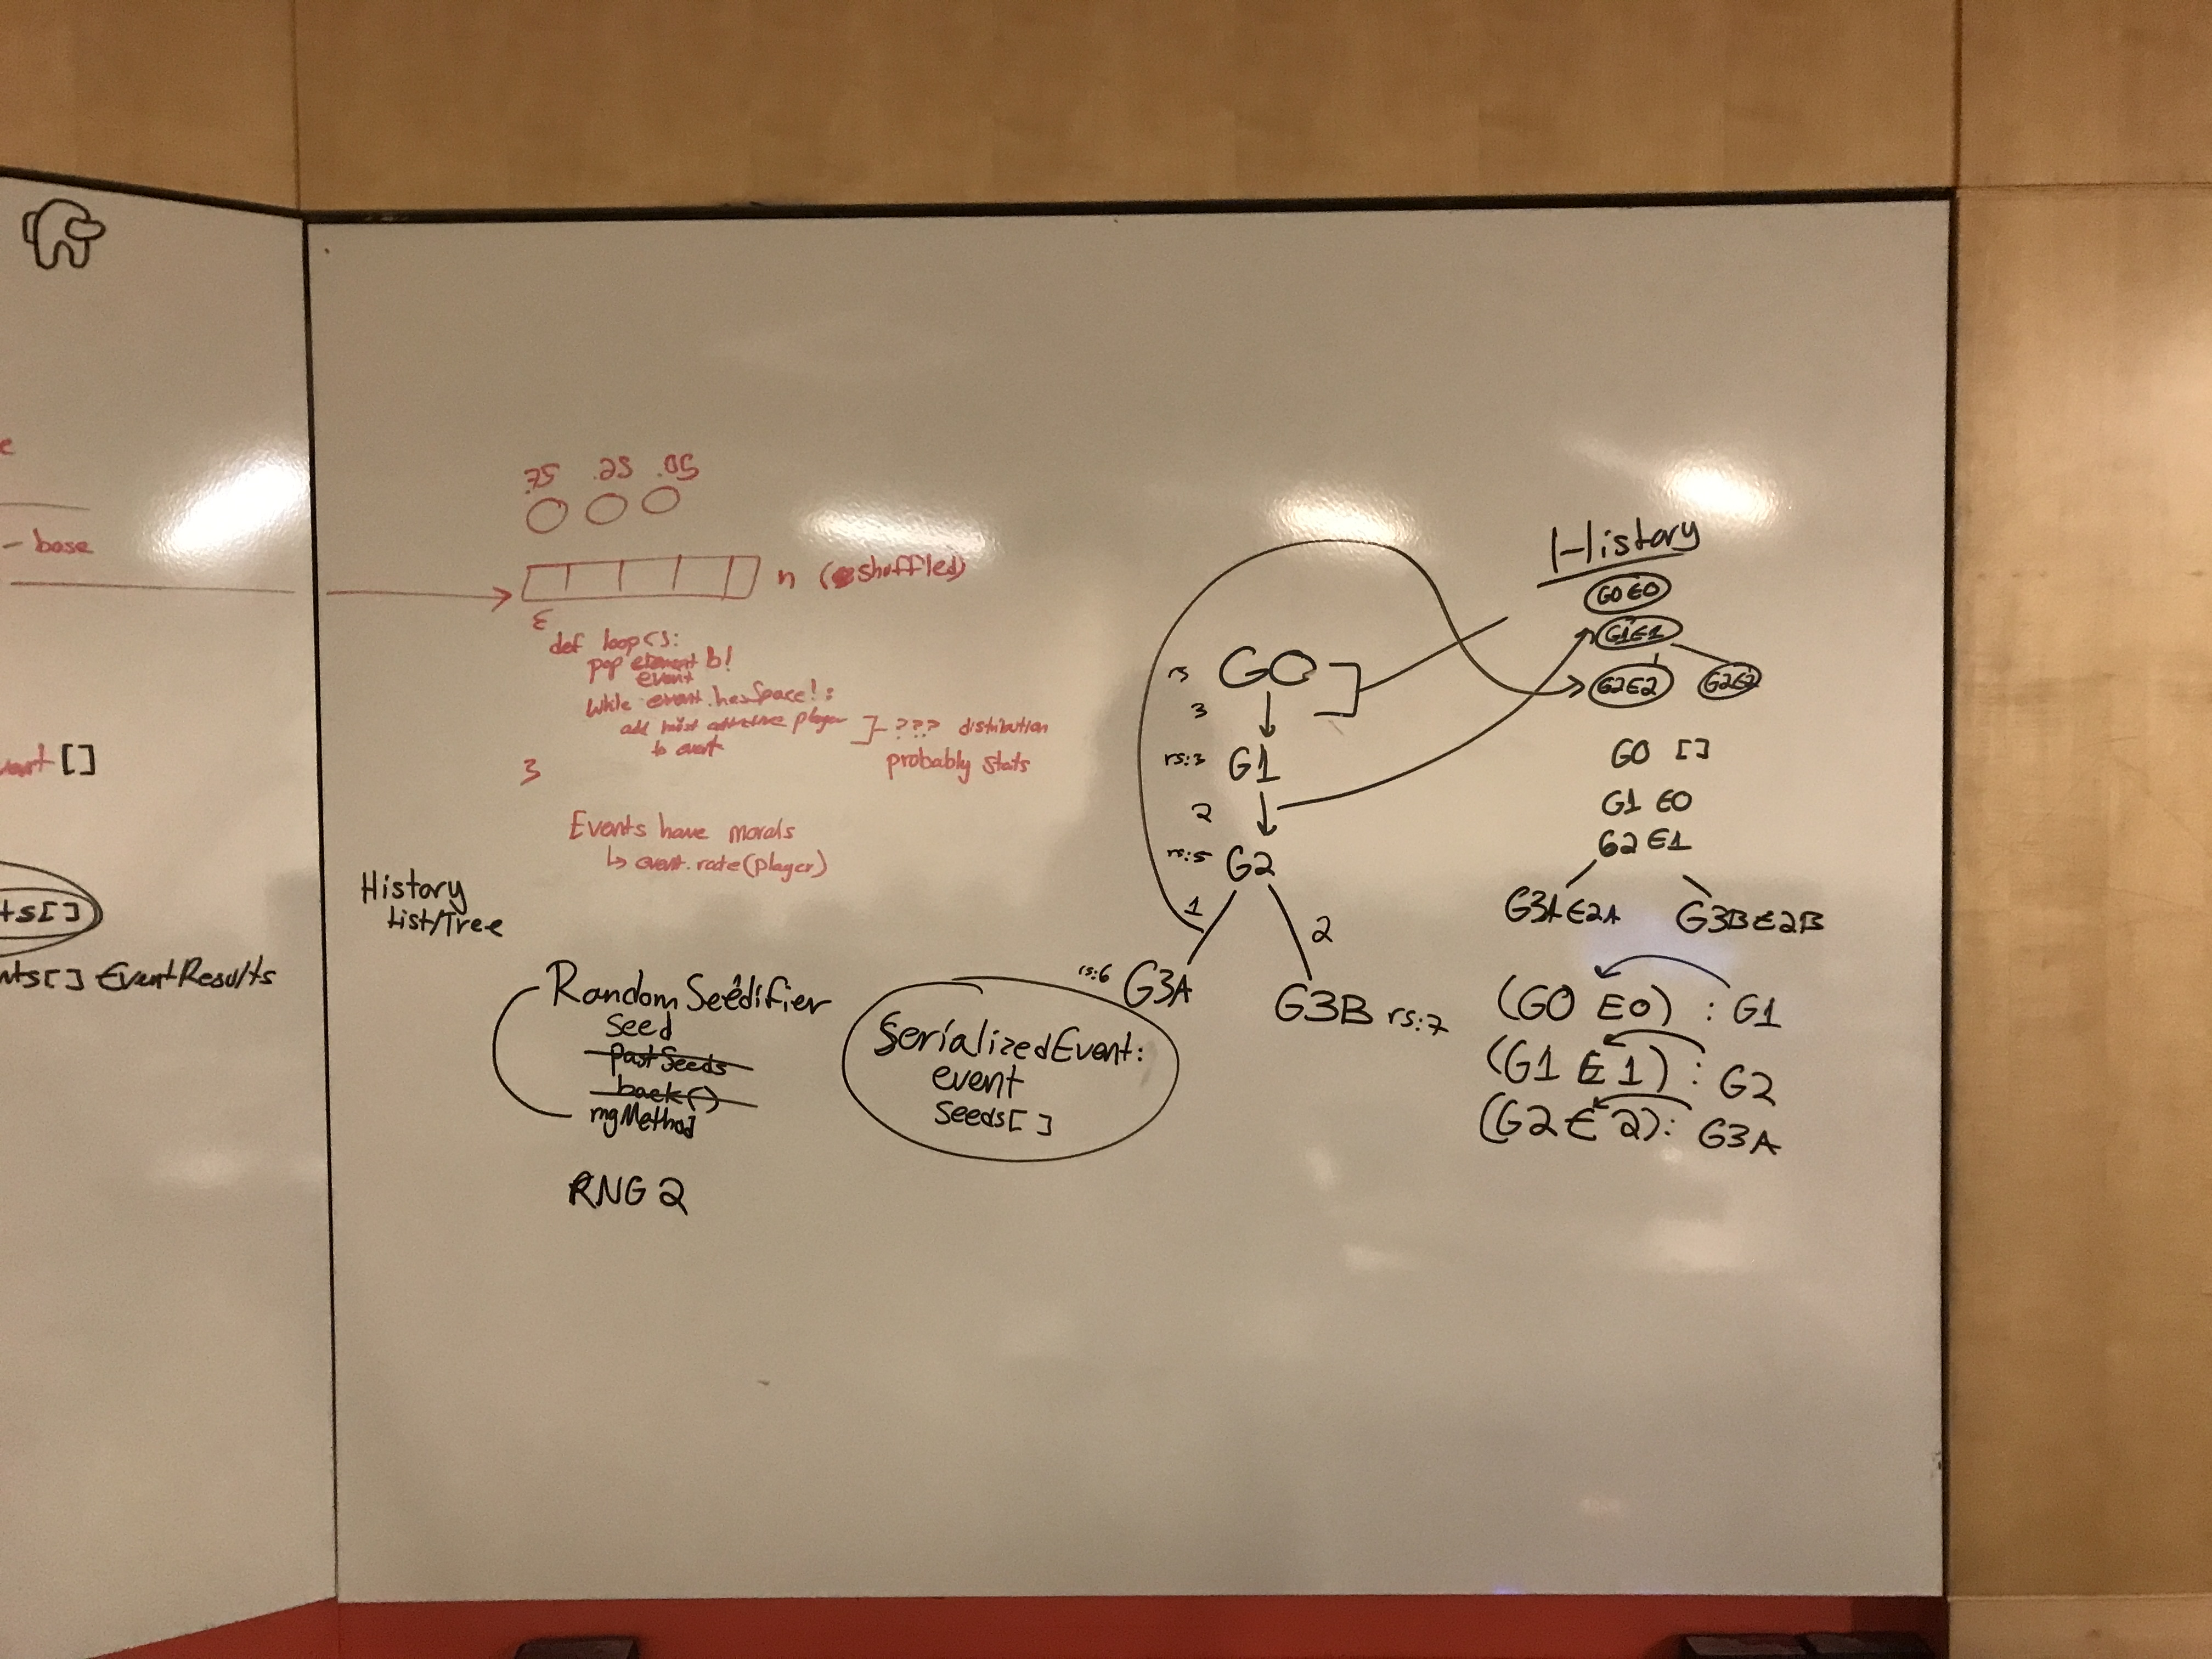 e
- base
[]
ts[])
nts[] EventResults
.75 .25 .05
n (shuffled)
def loop():
pop element b!
event
while event.hasSpace!:
add most attractive player
to event
]- ??? distribution
probably stats
Events have morals
↳ event.rate(player)
History
List/Tree
RandomSeedifier
Seed
pastSeeds
back()
rngMethod
RNG 2
SerializedEvent:
event
Seeds[]
rs G0
3
rs:3 G1
2
rs:5 G2
1 2
rs:6 G3A
G3B rs:7
History
G0E0
G1E1
G2E2 G2E2
G0 []
G1 E0
G2 E1
G3A E2A G3B E2B
(G0 E0) : G1
(G1 E1) : G2
(G2 E2) : G3A